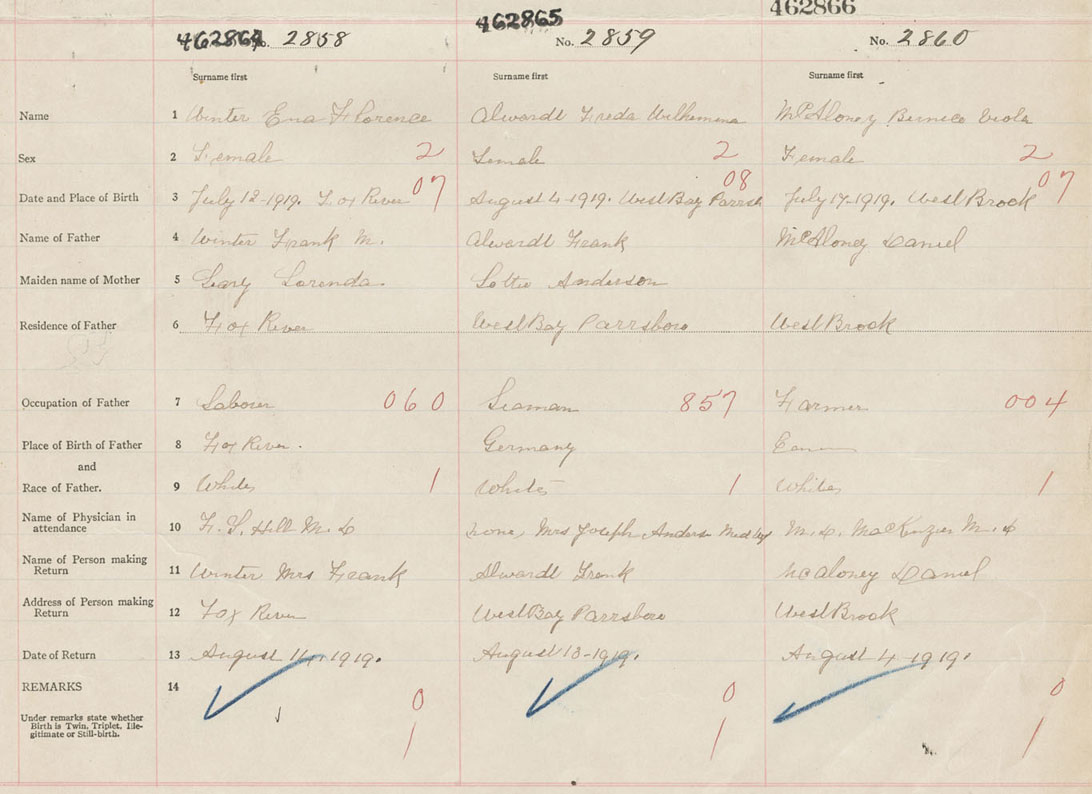 462864 462865 462866
No. 2858 No. 2859 No. 2860
Surname first Surname first Surname first
Name 1 Winter Ena Florence Alwardt Freda Wilhemina McAloney Bernice Viola
Sex 2 Female 2 Female 2 Female 2
07 08 07
Date and Place of Birth 3 July 12-1919. Fox River August 4-1919. West Bay Parrsb July 17-1919. West Brook
Name of Father 4 Winter Frank M. Alwardt Frank McAloney Daniel
Maiden name of Mother 5 Lorenda. Lottie Anderson
Residence of Father 6 Fox River West Bay Parrsboro West Brook
Occupation of Father 7 Labourer 060 Seaman 857 Farmer 004
Place of Birth of Father 8 Fox River. Germany
and
Race of Father. 9 White 1 White 1 White 1
Name of Physician in
attendance 10 F. S. Hill M. D Mrs Joseph M. D. MacKenzie M. D
Name of Person making
Return 11 Winter Mrs Frank Alwardt Frank McAloney Daniel
Address of Person making
Return 12 Fox River West Bay Parrsboro West Brook
Date of Return 13 August 14, 1919. August 13-1919. August 4-1919.
REMARKS 14 0 0 0
Under remarks state whether
Birth is Twin, Triplet, Ille-
gitimate or Still-birth. 1 1 1